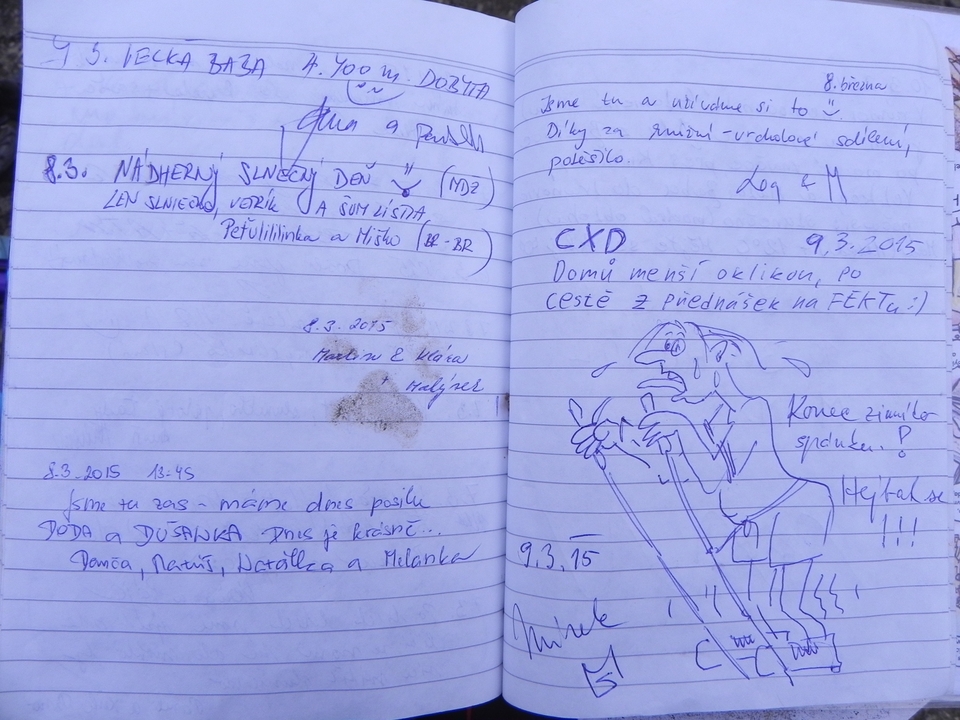 BABA 4.400 m. DOBYTA
a
8.3. NÁDHERNÝ SLNEČNÝ DEŇ (MDŽ)
LEN SLNIEČKO, VETRÍK A ŠUM LÍSTIA
Peťulililinka a Miško (BR-BR)
8.3.2015
Martin & Klára
+ Malýsek
8.3.2015 13:45
Jsme tu zas - máme dnes posilu
DOĎA a DUŠANKA Dnes je krásně...
Domča, Matúš, Natálka a Milanka
8. března
Jsme tu a užíváme si to
Díky za vrcholové sdílení,
potěšilo.
CXD 9.3.2015
Domů menší oklikou, po
cestě z přednášek na FEKTu :)
Konec zimního
spánku. ?
Hejbat se
!!!
9.3.15
Mirek